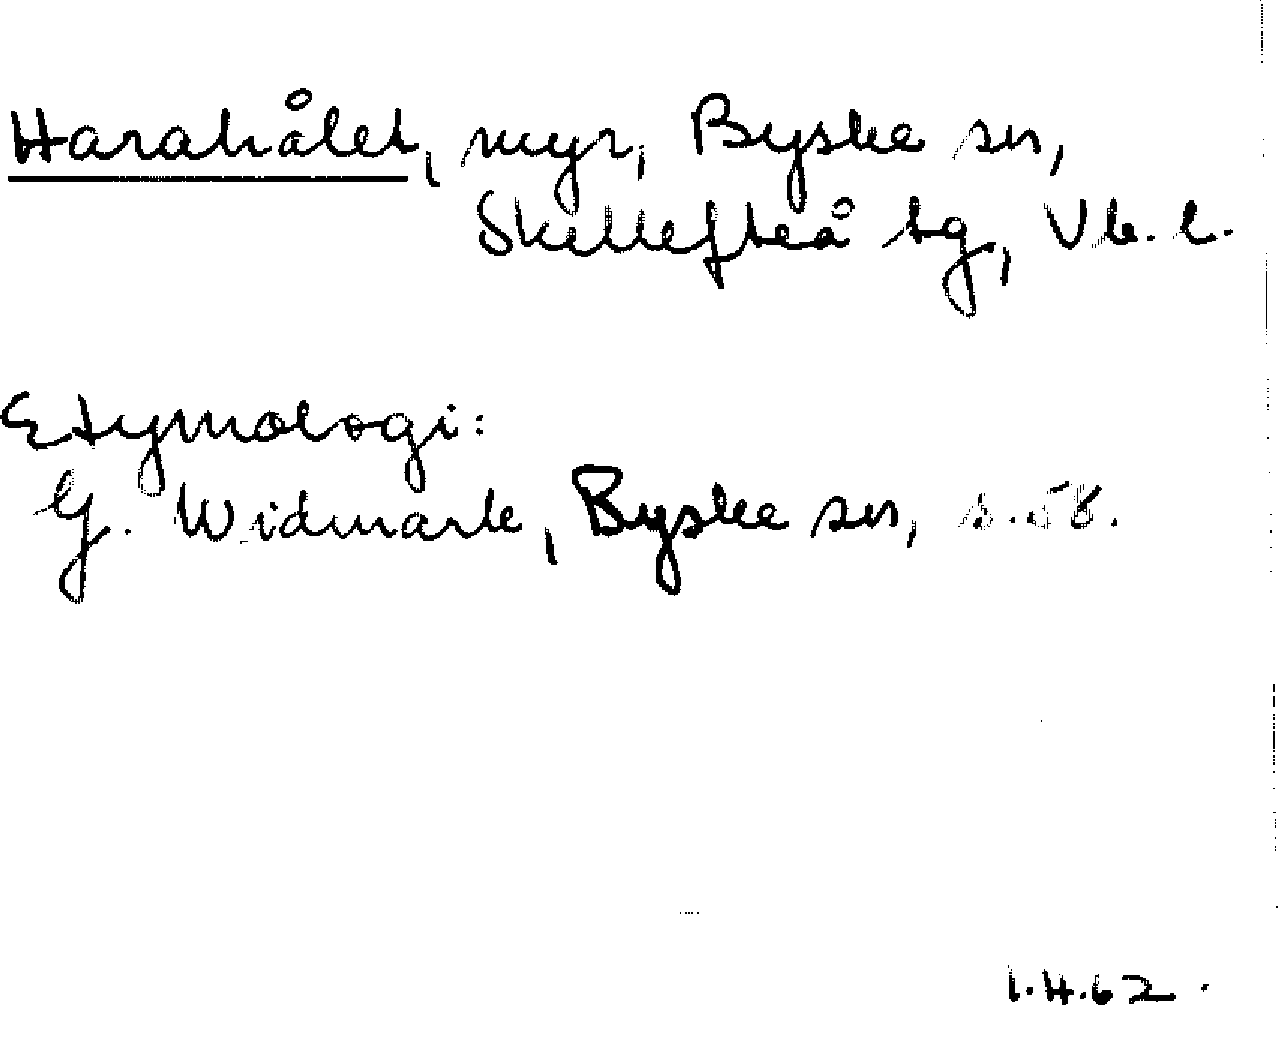 Harahålet, myr, Byske sn,
Skellefteå tg, Vb. l.
Etymologi:
G. Widmark, Byske sn, s. 58.
1.4.62.